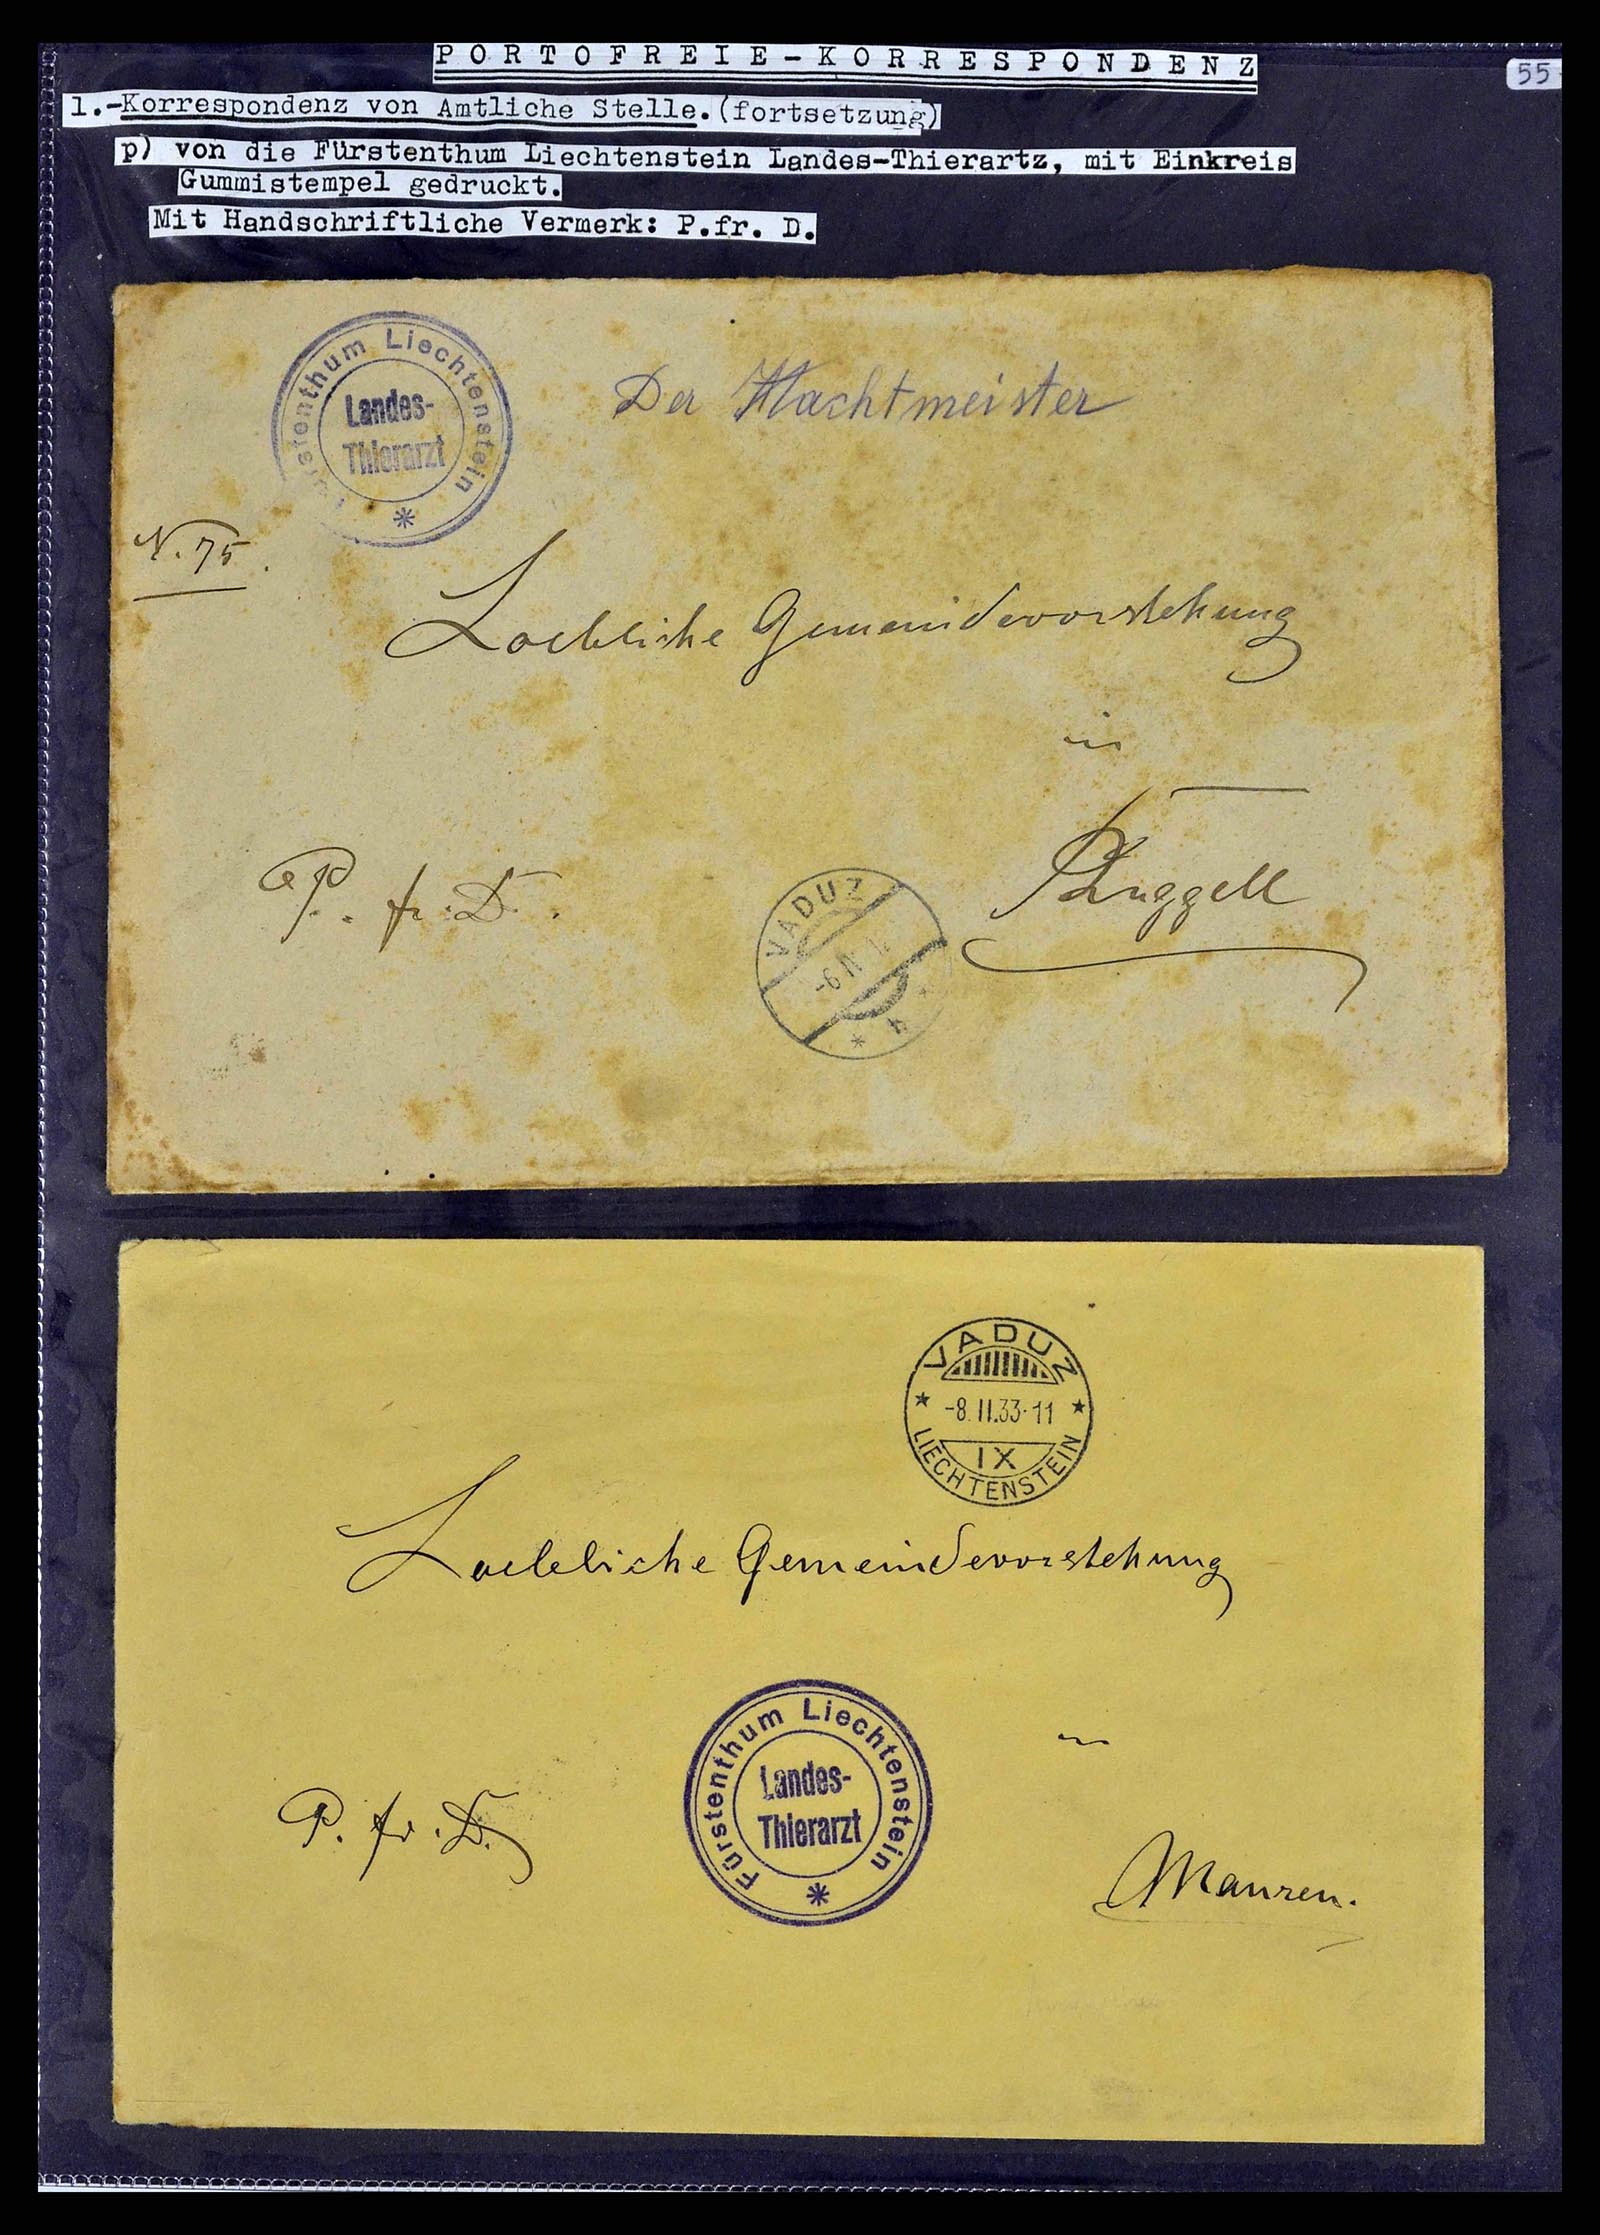 PORTOFREIE-KORRESPONDENZ
55
1.-Korrespondenz von Amtliche Stelle.(fortsetzung)
p) von die Fürstenthum Liechtenstein Landes-Thierartz, mit Einkreis
Gummistempel gedruckt.
Mit Handschriftliche Vermerk: P.fr. D.
Fürstenthum Liechtenstein
Landes-
Thierarzt
Der Wachtmeister
N. 75.
Loebliche Gemeindevorstehung
in
Ruggell
P. fr. D.
VADUZ
VADUZ
-8.II.33-11
IX
LIECHTENSTEIN
Loebliche Gemeindevorstehung
in
Mauren.
P. fr. D.
Fürstenthum Liechtenstein
Landes-
Thierarzt